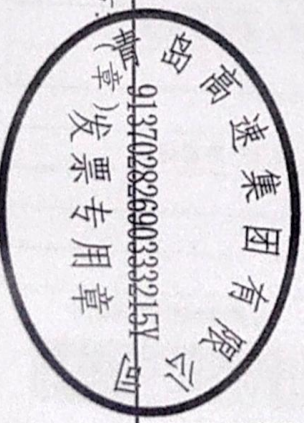 青岛高速集团有限公司
91370282690333215Y
发票专用章
(章)